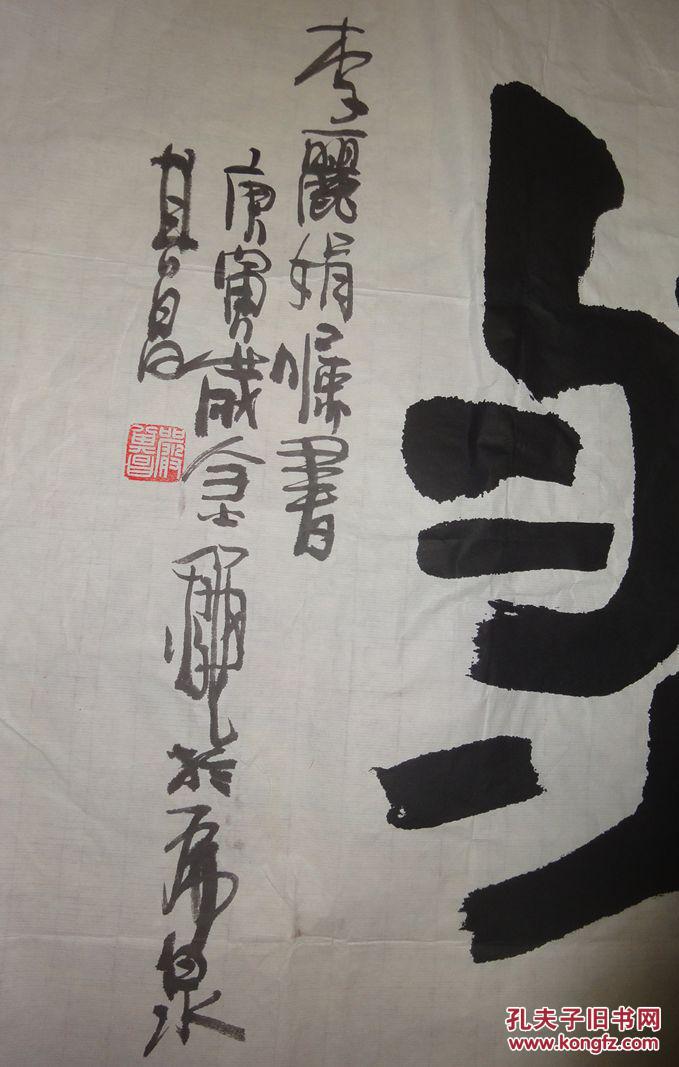 李麗娟囑書
庚寅歲金 於 泉
其昌
嚴其昌
孔夫子旧书网
www.kongfz.com